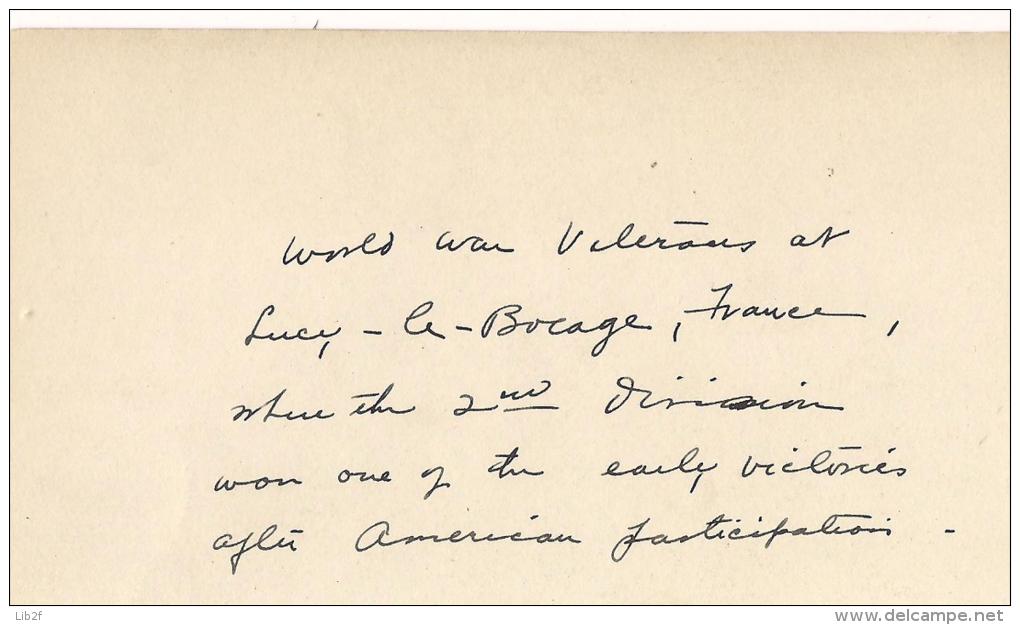 World War Veterans at
Lucy-le-Bocage, France,
where the 2nd Division
won one of the early victories
after American participation -
Lib2f
www.delcampe.net